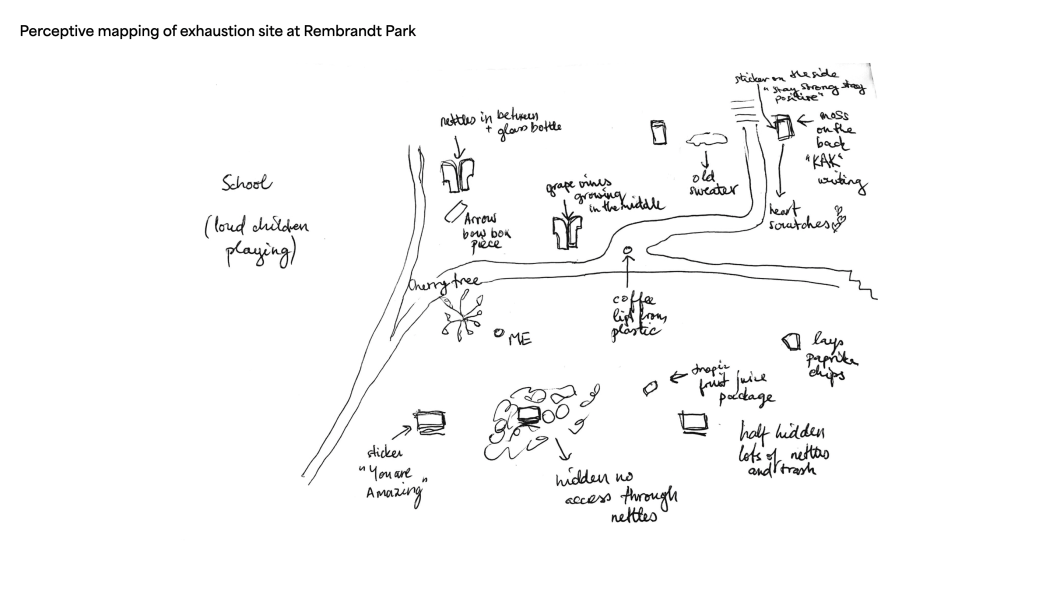 Perceptive mapping of exhaustion site at Rembrandt Park
sticker on the side
"stay strong stay
positive"
nettles in between
+ glass bottle
moss
on the
back
"KAK"
writing
School
(loud children
playing)
old
sweater
grape vines
growing
in the middle
heart
scratches
Arrow
bow box
piece
Cherry tree
coffee
lipt from
plastic
ME
lays
paprika
chips
tropic
fruit juice
package
half hidden
lots of nettles
and trash
sticker
"You are
Amazing"
hidden no
access through
nettles